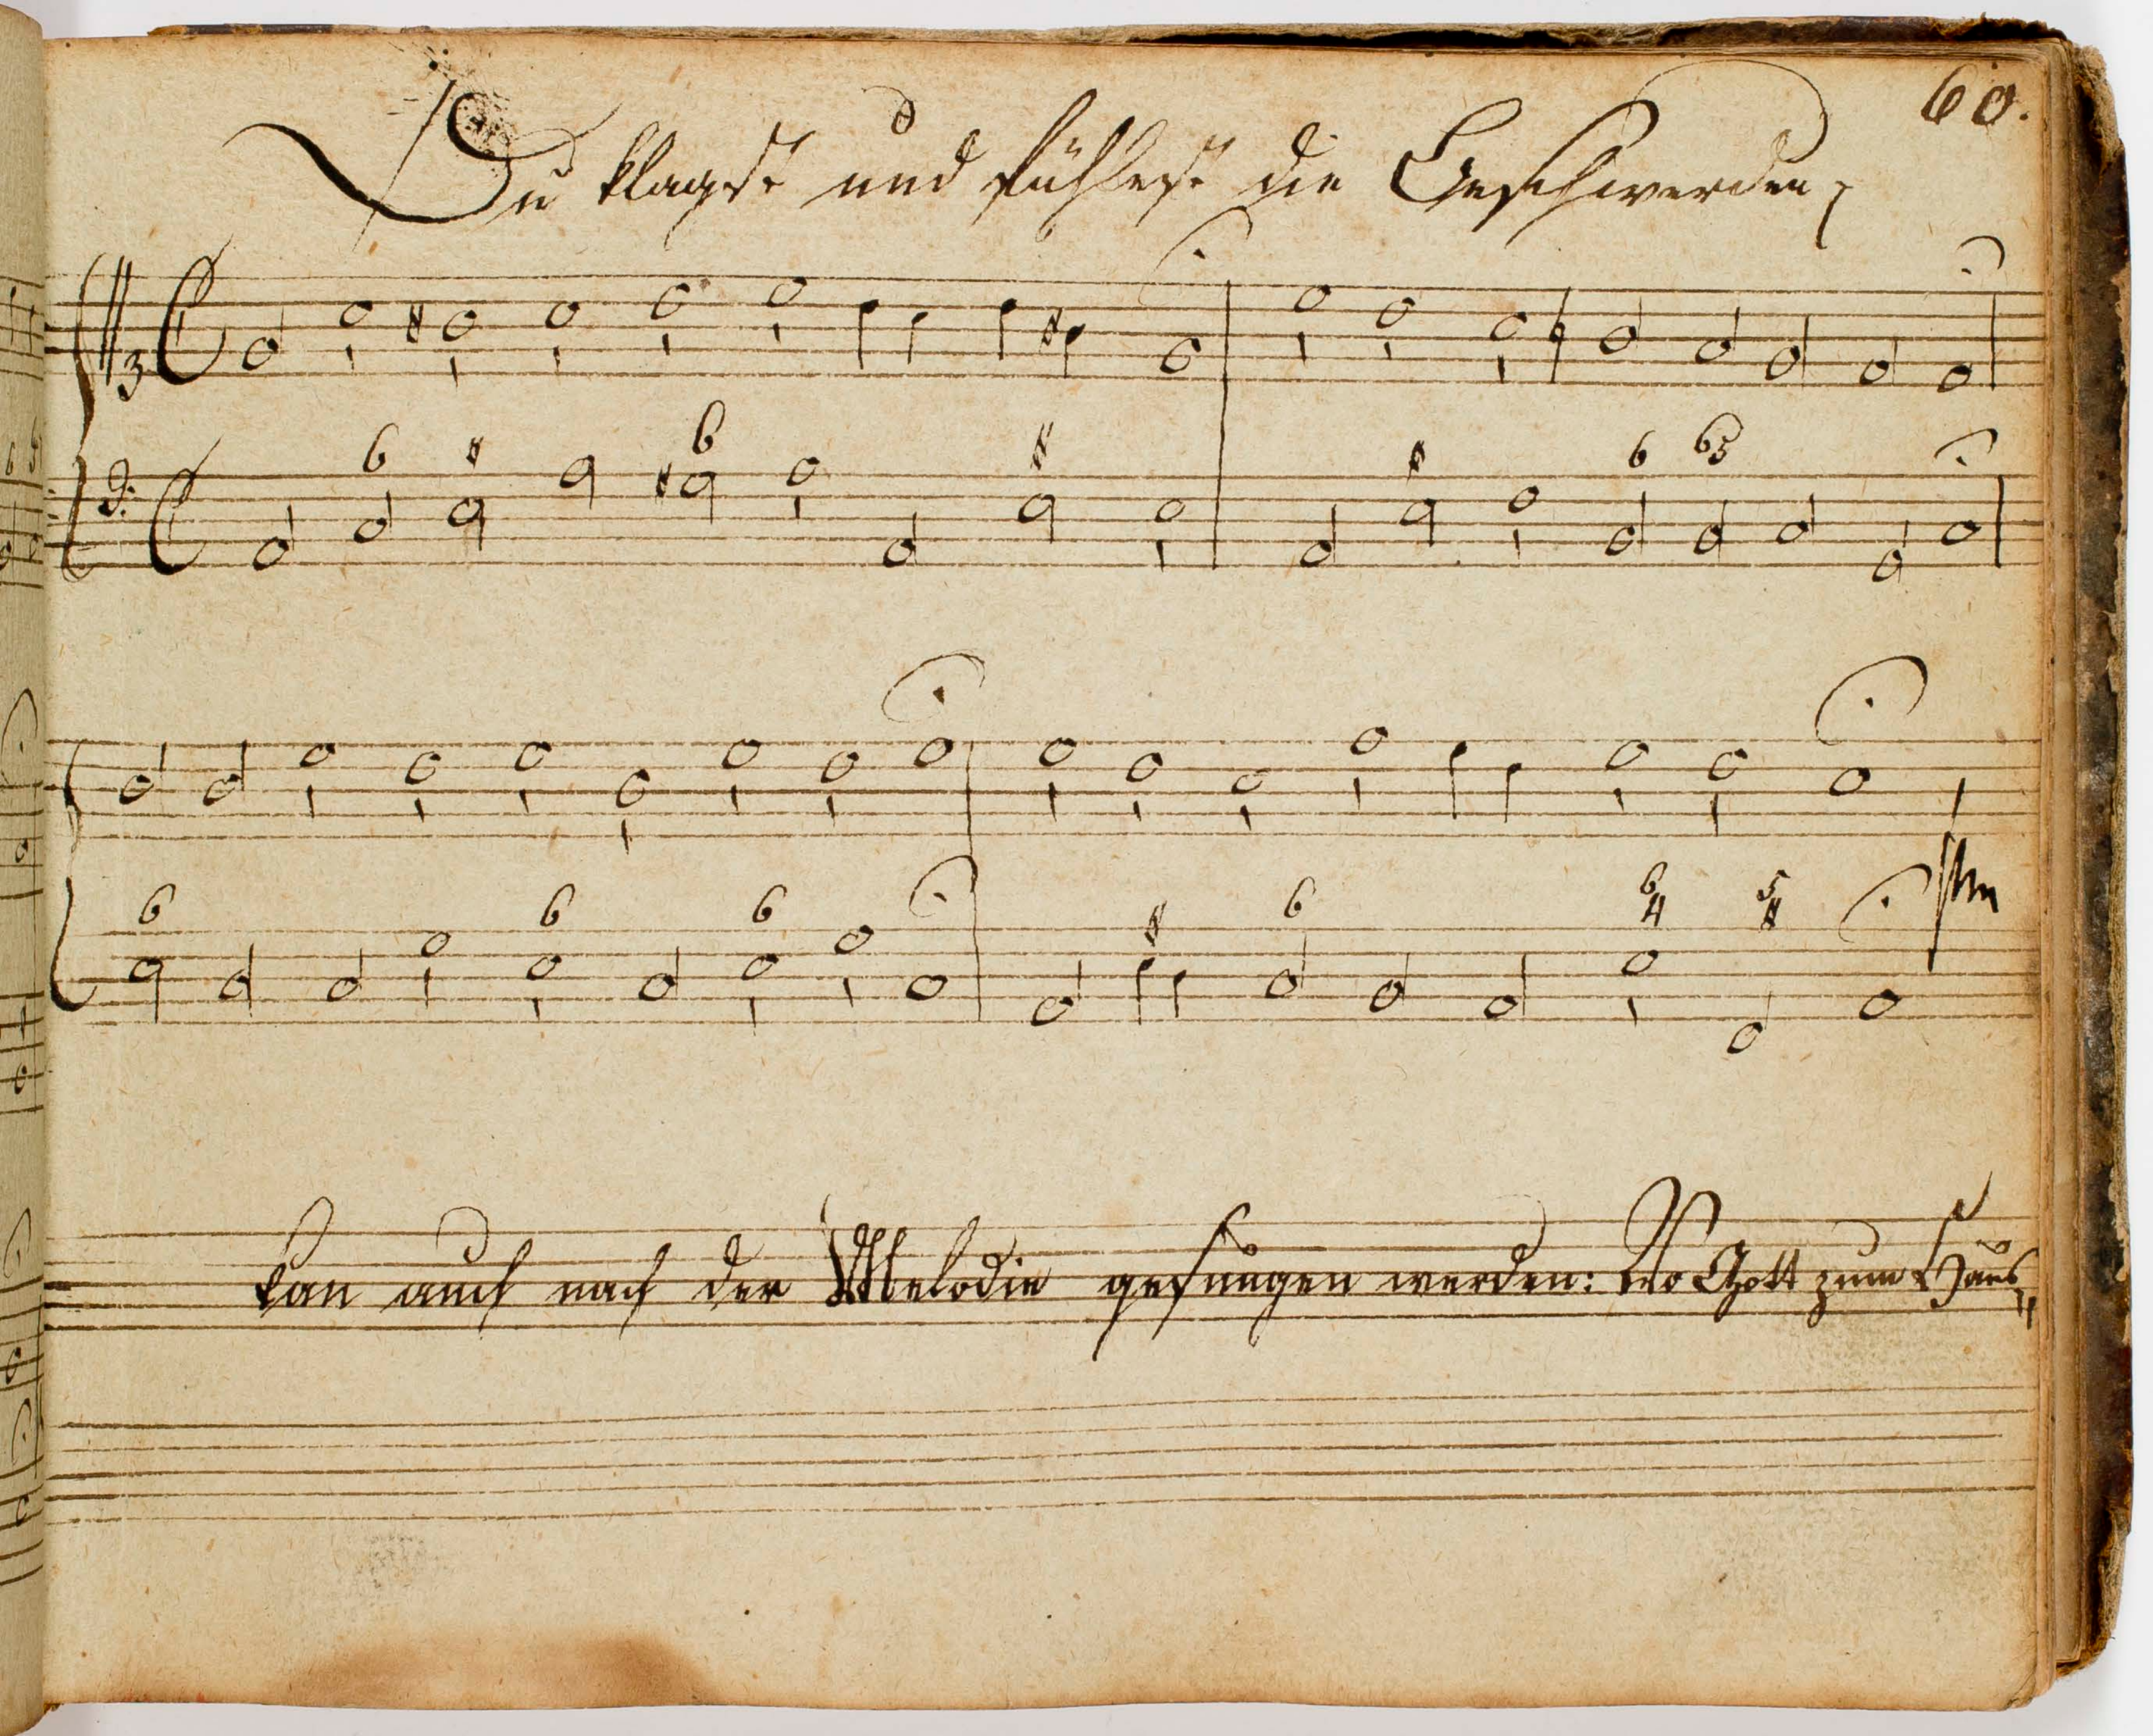 60.
Du klagst und fühlest die Beschwerden
6 6 6 65
6 6 6 6 6 5
4
kan auch nach der Melodie gesungen werden: Wo Gott zum Haus